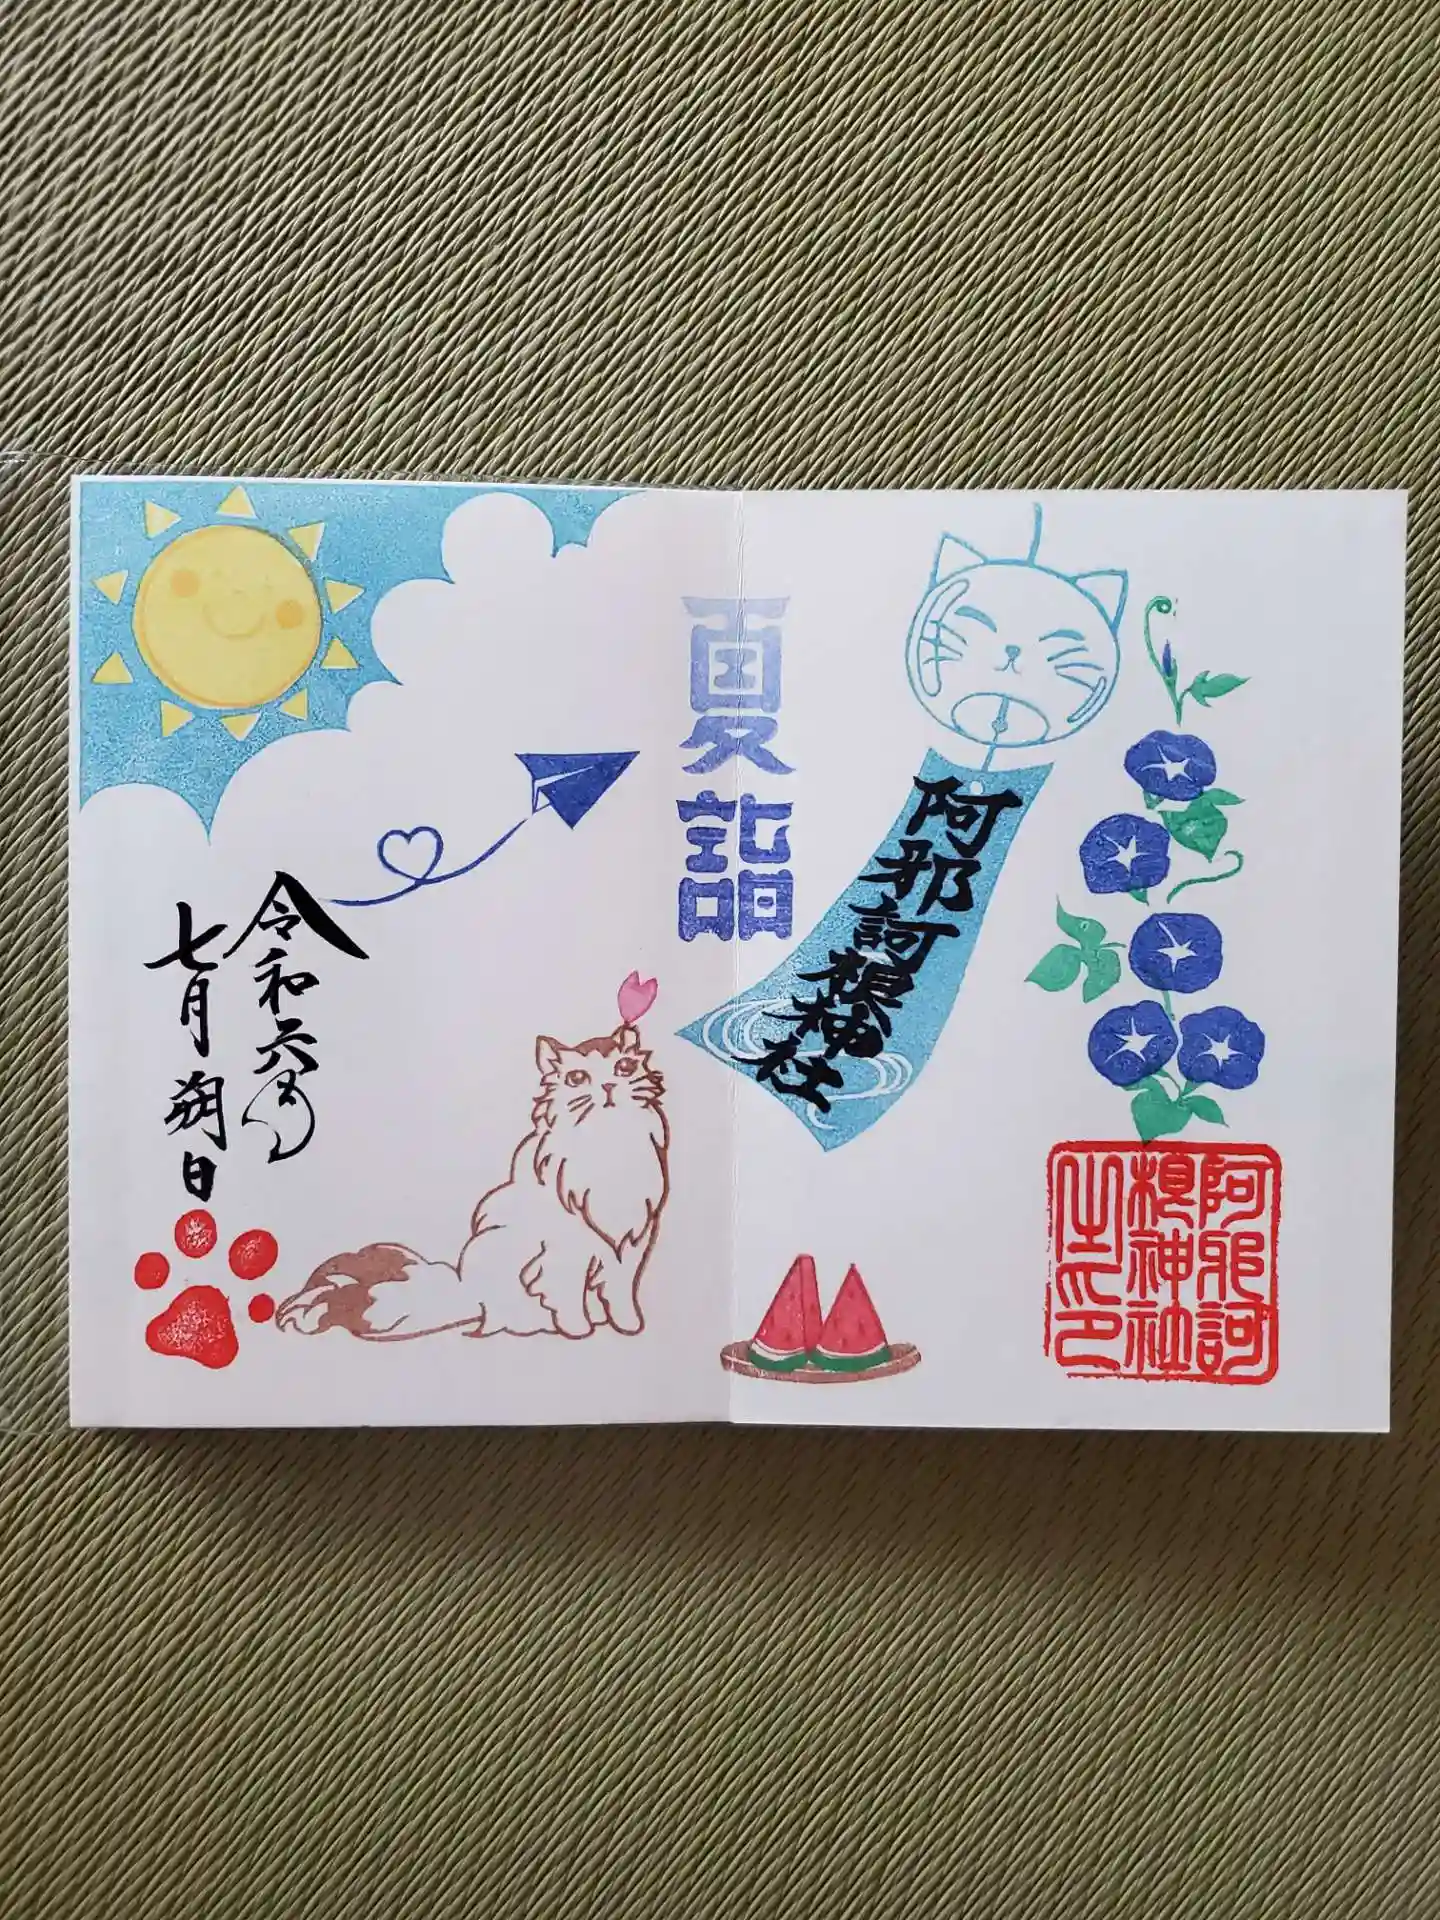 夏詣
阿邪訶根神社
令和六年
七月朔日
阿邪訶
根神社
之印